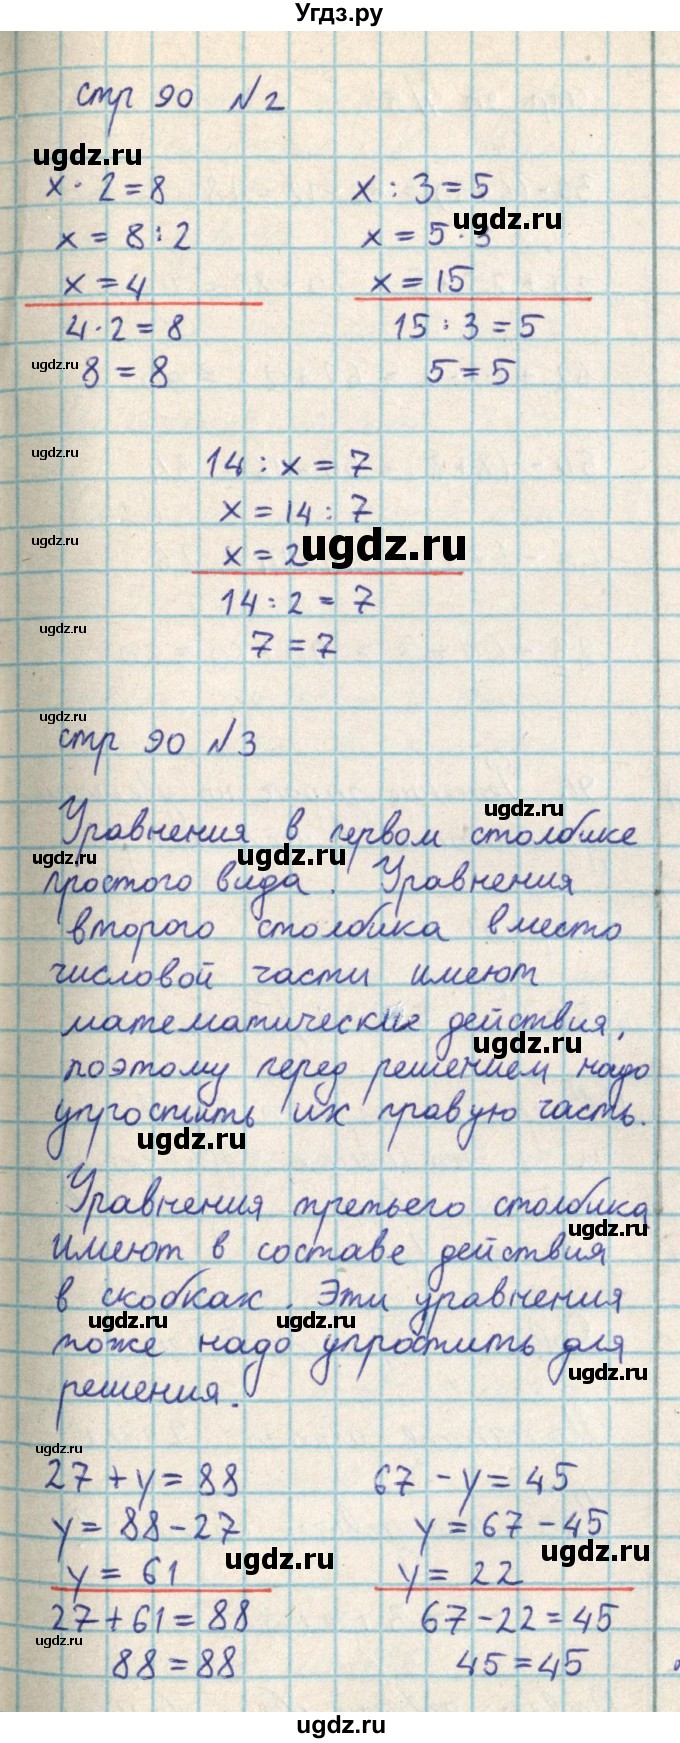 Угдз.ру
стр 90 №2
ugdz.ru
x · 2 = 8
x : 3 = 5
ugdz.ru
x = 8 : 2
x = 5 · 3
x = 4
x = 15
4 · 2 = 8
15 : 3 = 5
ugdz.ru
8 = 8
5 = 5
ugdz.ru
14 : x = 7
x = 14 : 7
ugdz.ru
x = 2
ugdz.ru
14 : 2 = 7
ugdz.ru
7 = 7
ugdz.ru
стр 90 №3
ugdz.ru
Уравнения в первом столбике
ugdz.ru
ugdz.ru
простого вида. Уравнения
второго столбика вместо
числовой части имеют
математические действия,
ugdz.ru
поэтому перед решением надо
упростить их правую часть.
ugdz.ru
Уравнения третьего столбика
ugdz.ru
имеют в составе действия
в скобках. Эти уравнения
ugdz.ru
ugdz.ru
тоже надо упростить для
ugdz.ru
решения.
ugdz.ru
27 + y = 88
67 - y = 45
y = 88 - 27
y = 67 - 45
ugdz.ru
ugdz.ru
y = 61
y = 22
27 + 61 = 88
67 - 22 = 45
ugdz.ru
88 = 88
45 = 45
ugdz.ru